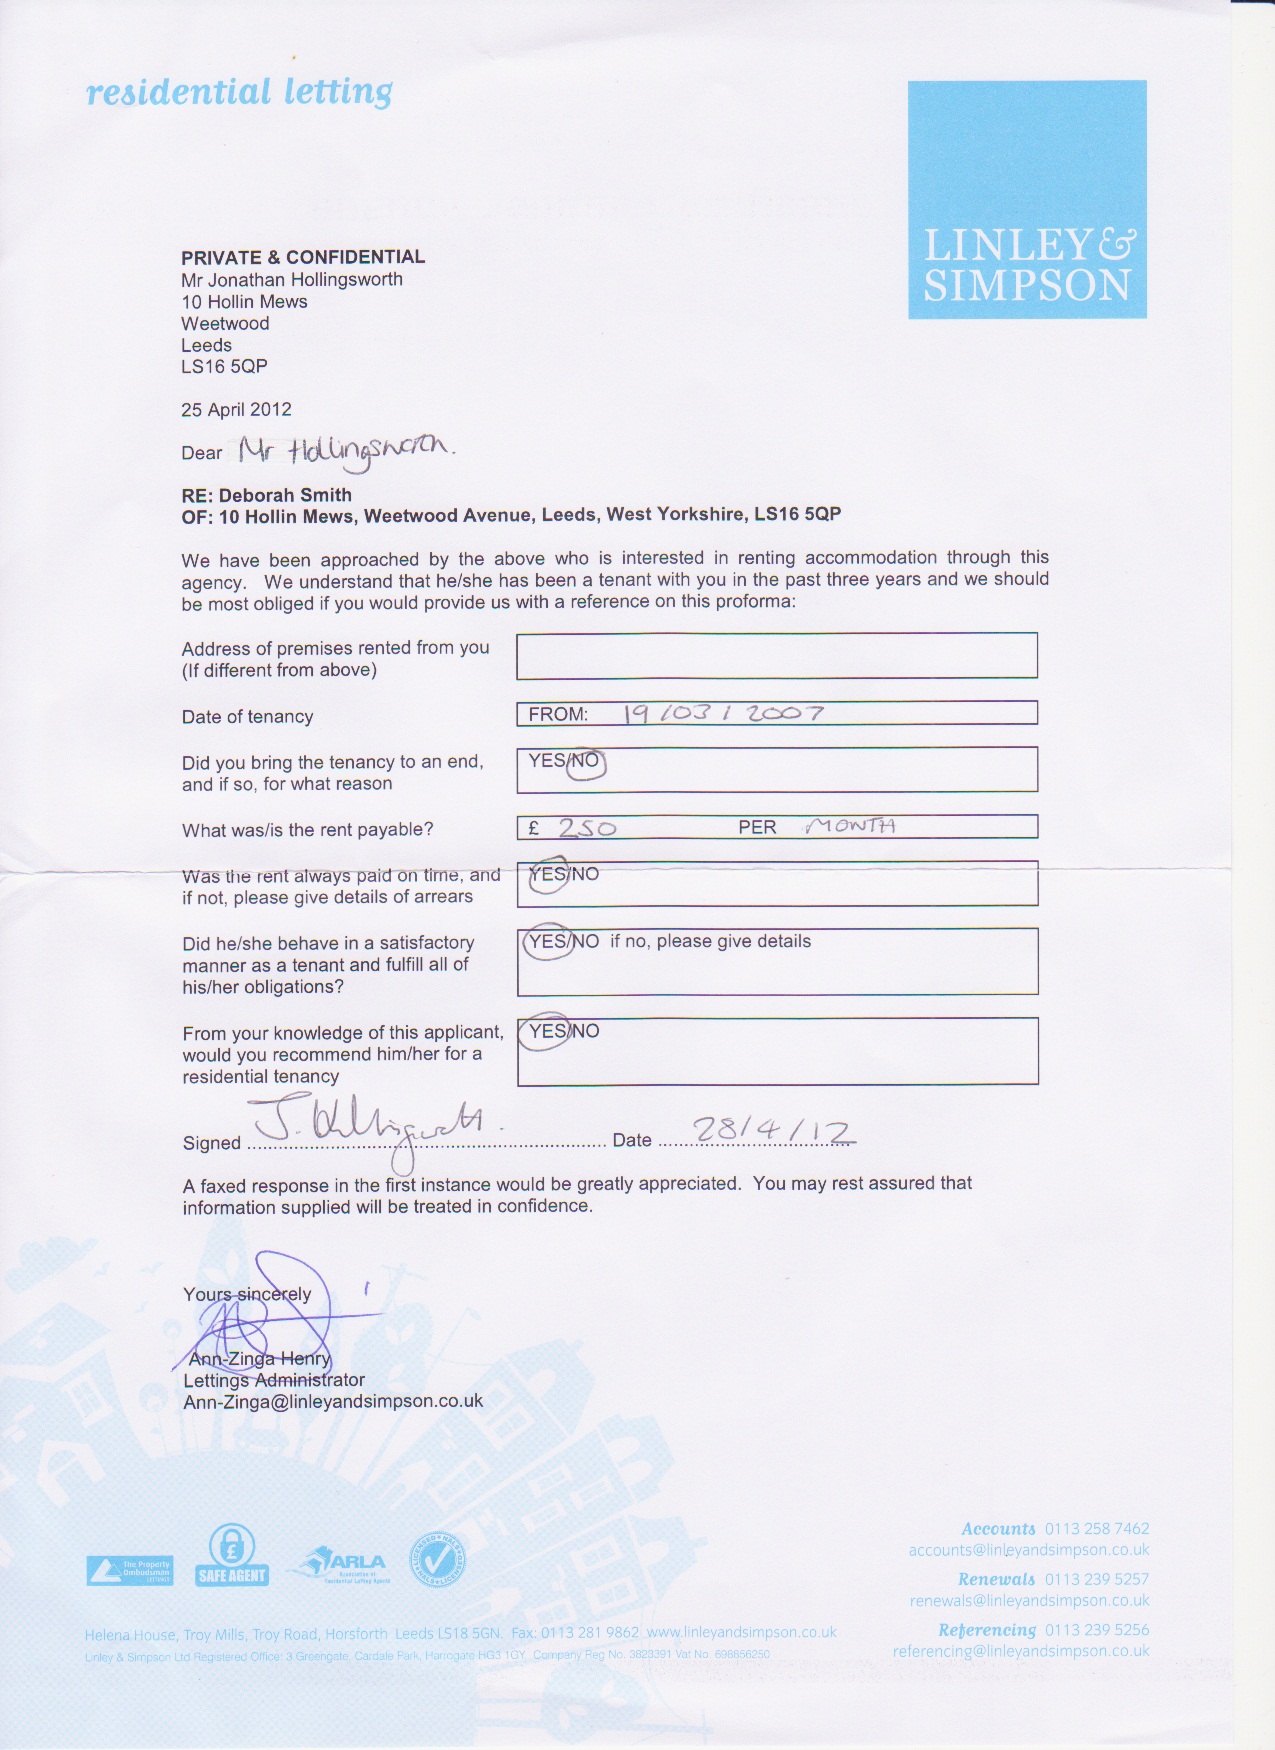 residential letting
LINLEY &
SIMPSON
PRIVATE & CONFIDENTIAL
Mr Jonathan Hollingsworth
10 Hollin Mews
Weetwood
Leeds
LS16 5QP
25 April 2012
Dear Mr Hollingsworth.
RE: Deborah Smith
OF: 10 Hollin Mews, Weetwood Avenue, Leeds, West Yorkshire, LS16 5QP
We have been approached by the above who is interested in renting accommodation through this
agency. We understand that he/she has been a tenant with you in the past three years and we should
be most obliged if you would provide us with a reference on this proforma:
Address of premises rented from you
(If different from above)
Date of tenancy FROM: 19/03/2007
Did you bring the tenancy to an end, YES/NO
and if so, for what reason
What was/is the rent payable? £ 250 PER MONTH
Was the rent always paid on time, and YES/NO
if not, please give details of arrears
Did he/she behave in a satisfactory YES/NO if no, please give details
manner as a tenant and fulfill all of
his/her obligations?
From your knowledge of this applicant, YES/NO
would you recommend him/her for a
residential tenancy
Signed J. Hollingsworth. Date 28/4/12
A faxed response in the first instance would be greatly appreciated. You may rest assured that
information supplied will be treated in confidence.
Yours sincerely
Ann-Zinga Henry
Lettings Administrator
Ann-Zinga@linleyandsimpson.co.uk
Accounts 0113 258 7462
accounts@linleyandsimpson.co.uk
Renewals 0113 239 5257
renewals@linleyandsimpson.co.uk
Referencing 0113 239 5256
referencing@linleyandsimpson.co.uk
The Property
Ombudsman
LETTINGS
SAFE AGENT
ARLA
Association of
Residential Letting Agents
LICENSED NALS
Helena House, Troy Mills, Troy Road, Horsforth Leeds LS18 5GN. Fax: 0113 281 9862 www.linleyandsimpson.co.uk
Linley & Simpson Ltd Registered Office: 3 Greengate, Cardale Park, Harrogate HG3 1GY Company Reg No. 3823391 Vat No. 698856250